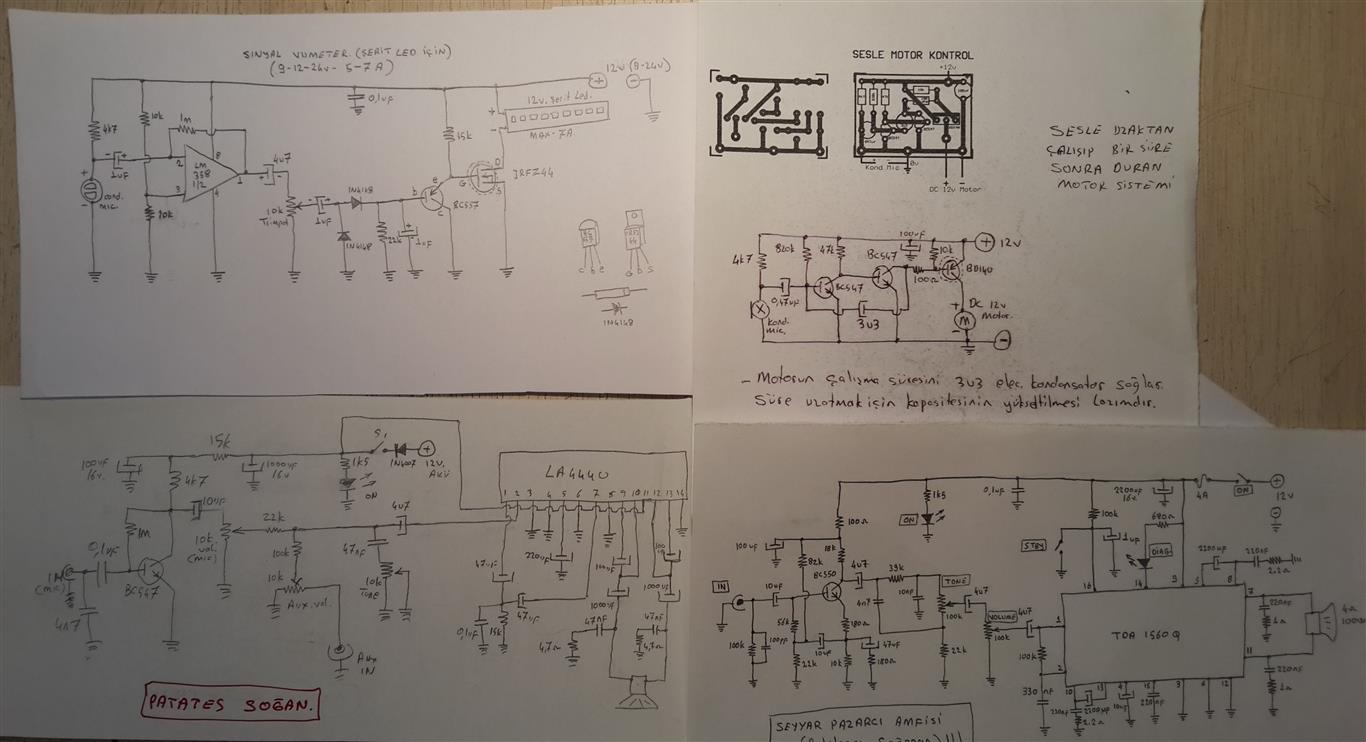 SİNYAL VUMETER. (ŞERİT LED İÇİN)
(9-12-24v - 5-7A)
12v (9-24v)
0,1uF
12v. Şerit Led.
MAX-7A.
4k7
10k
1m
15k
1uF
2
LM
358
1/2
8
1
3
4
4u7
10k
Trimpot
10k
Cond.
mic.
1uF
1N4148
1N4148
22k
1uF
b
e
c
BC557
G
D
S
IRFZ44
c b e
G D S
1N4148
SESLE MOTOR KONTROL
+12v
Kond Mic
0v
DC 12v Motor
SESLE UZAKTAN
ÇALIŞIP BİR SÜRE
SONRA DURAN
MOTOR SİSTEMİ
100uF
12v
4k7
820k
47k
BC547
10k
BC547
100Ω
BD140
0,47uF
3u3
Kond.
mic.
DC 12v
Motor.
M
- Motorun çalışma süresini 3u3 elec. kondansatör sağlar.
Süre uzatmak için kapasitesinin yükseltilmesi lazımdır.
15k
100uF
16v.
4k7
1000uF
16v
S1
1k5
ON
1N4007
12v.
Akü
LA4440
1 2 3 4 5 6 7 8 9 10 11 12 13 14
10uF
1M
10k
vol.
(mic)
22k
4u7
0,1uF
IN
(mic)
BC547
4n7
100k
10k
Aux.vol.
47nF
10k
Tone
Aux
IN
47uF
220uF
100uF
100u
1000uF
1000uF
47uF
0,1uF
15k
47nF
4,7Ω
47nF
4,7Ω
PATATES SOĞAN.
1k5
ON
0,1uF
2200uF
16v.
4A
ON
12v
100Ω
100k
680Ω
STBY
1uF
DIAG
100uF
82k
18k
BC550
4u7
39k
10nF
TONE
IN
10uF
4n7
100k
4u7
VOLUME
4u7
100k
56k
180Ω
100k
100pF
22k
10uF
10k
47uF
180Ω
22k
2200uF
220nF
2.2Ω
16
14
9
5
8
7
1
2
TDA 1560Q
11
220nF
1Ω
4Ω
100W
220nF
1Ω
100k
330nF
10
13
4
15
3
6
12
220nF
2200uF
2.2Ω
10uF
220nF
SEYYAR PAZARCI AMFİSİ